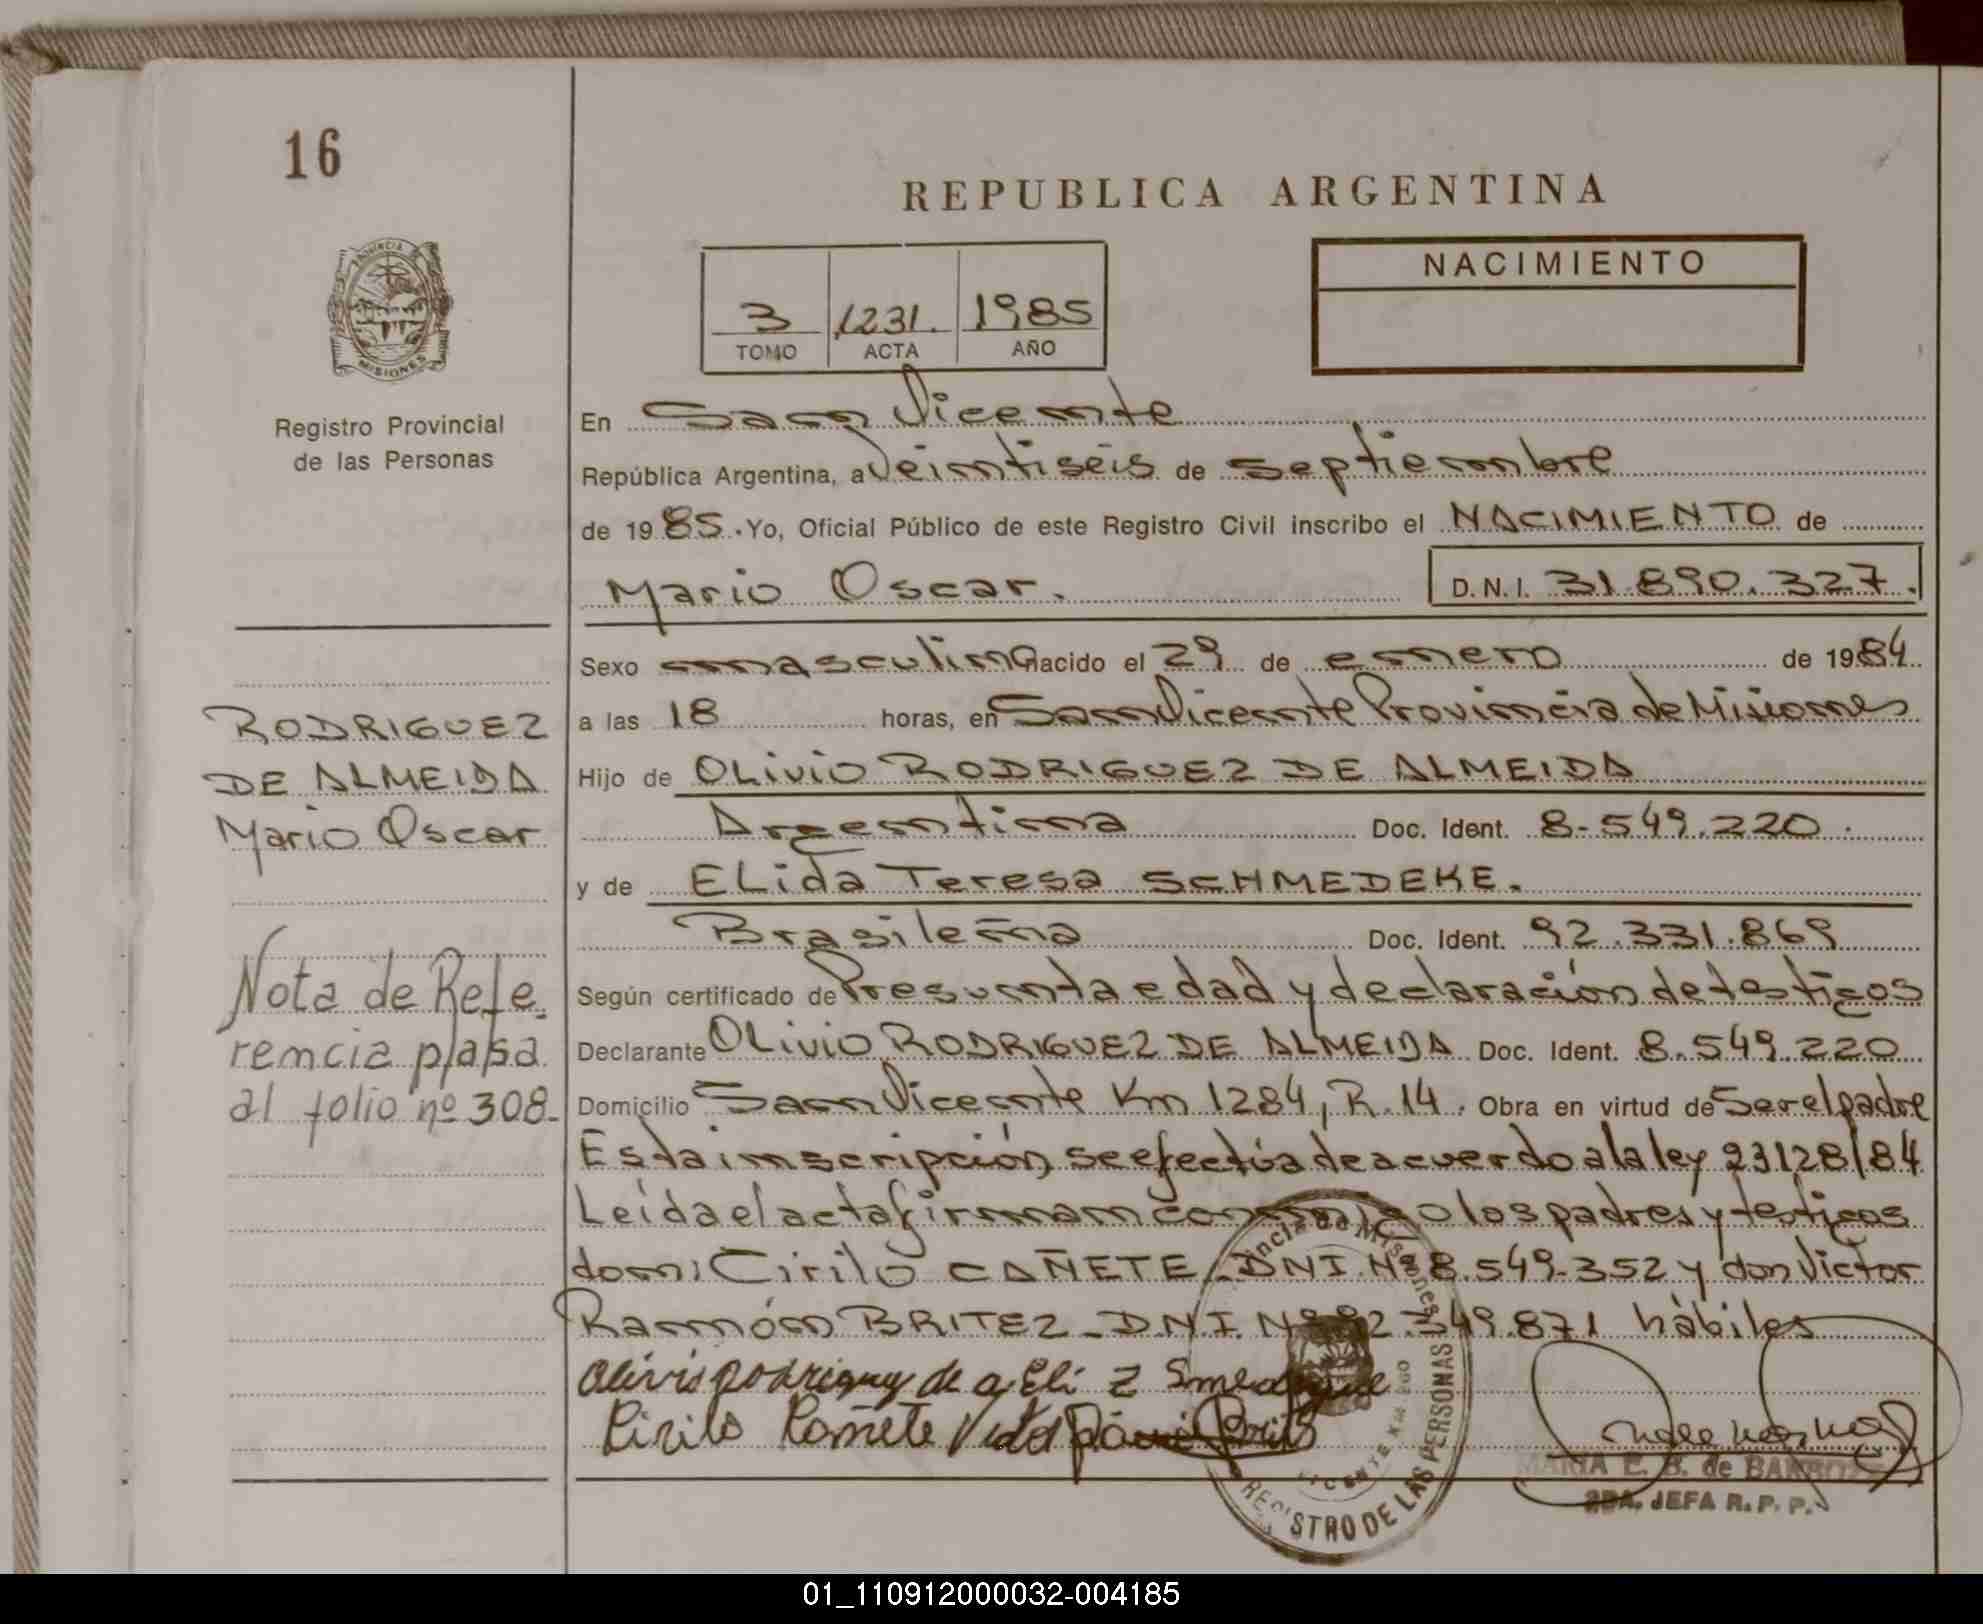 16
REPUBLICA ARGENTINA
PROVINCIA DE
MISIONES
Registro Provincial
de las Personas
3 1231. 1985
TOMO ACTA AÑO
NACIMIENTO
En San Vicente
República Argentina, a Veintiseis de septiembre
de 1985. Yo, Oficial Público de este Registro Civil inscribo el NACIMIENTO de
Mario Oscar. D.N.I. 31.890.327.
Sexo masculino nacido el 29 de enero de 1984
a las 18 horas, en San Vicente Provincia de Misiones
Hijo de OLivio RODRIGUEZ DE ALMEIDA
Argentina Doc. Ident. 8.549.220.
y de ELida Teresa SCHMEDEKE.
Brasileña Doc. Ident. 92.331.869
Según certificado de Presunta edad y declaración de testigos
Declarante OLivio RODRIGUEZ DE ALMEIDA Doc. Ident. 8.549.220
Domicilio San Vicente Km 1284, R.14. Obra en virtud de Ser el padre
Esta inscripción se efectúa de acuerdo a la ley 23128/84
Leída el acta firman conmigo los padres y testigos
don: Cirilo CAÑETE. DNI. Nº 8.549.352 y don Victor
Ramón BRITEZ - DNI. Nº 92.349.871 hábiles
RODRIGUEZ
DE ALMEIDA
Mario Oscar
Nota de Refe-
rencia pasa
al folio nº 308.-
Cirilo Cañete
Provincia de Misiones
REGISTRO DE LAS PERSONAS
MARIA E. B. de
JEFA R. P. P.
01_110912000032-004185